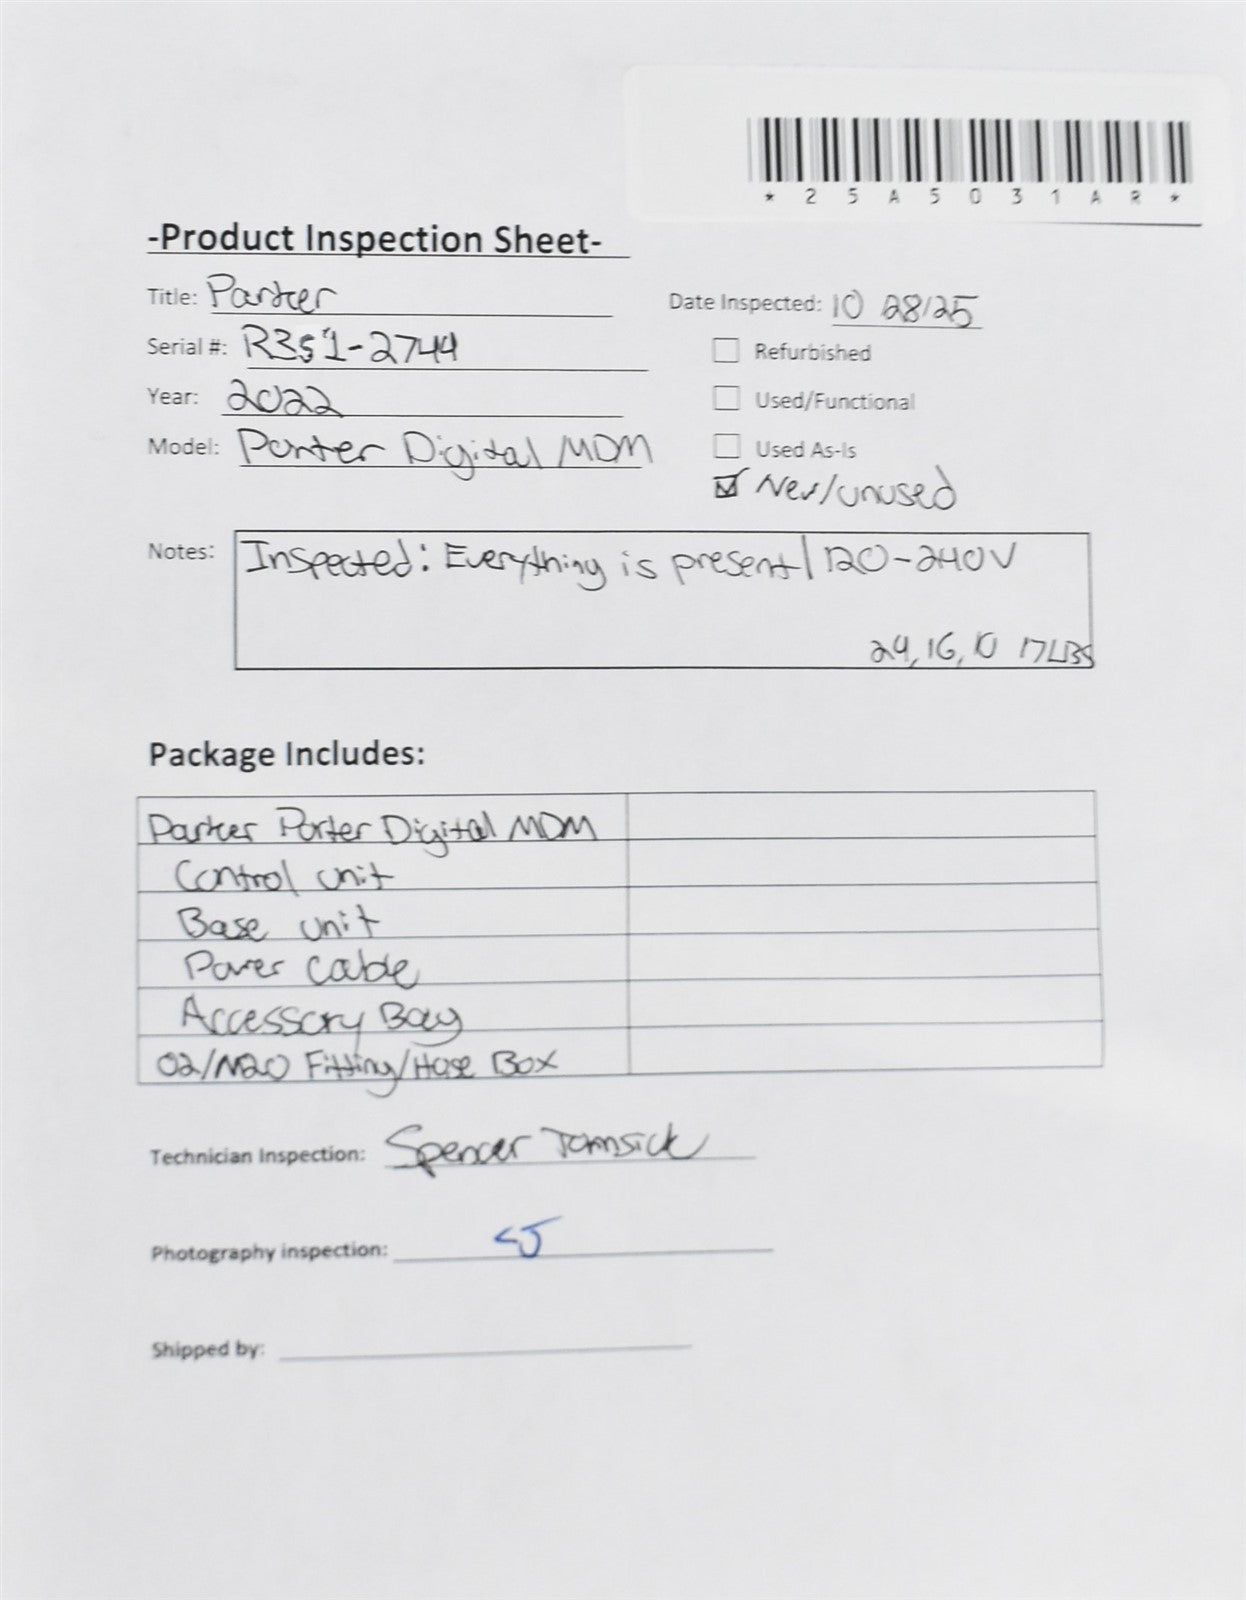 * 2 5 A 5 0 3 1 A R *
-Product Inspection Sheet-
Title: Parker
Date Inspected: 10 28/25
Serial #: R351-2744
Refurbished
Year: 2022
Used/Functional
Model: Porter Digital MDM
Used As-Is
New/unused
Notes: Inspected: Everything is present/ 120-240V
24, 16, 10 17LBS
Package Includes:
Parker Porter Digital MDM
Control unit
Base unit
Power cable
Accessory Bag
O2/N2O Fitting/Hose Box
Technician Inspection: Spencer Tomsick
Photography inspection: SJ
Shipped by: